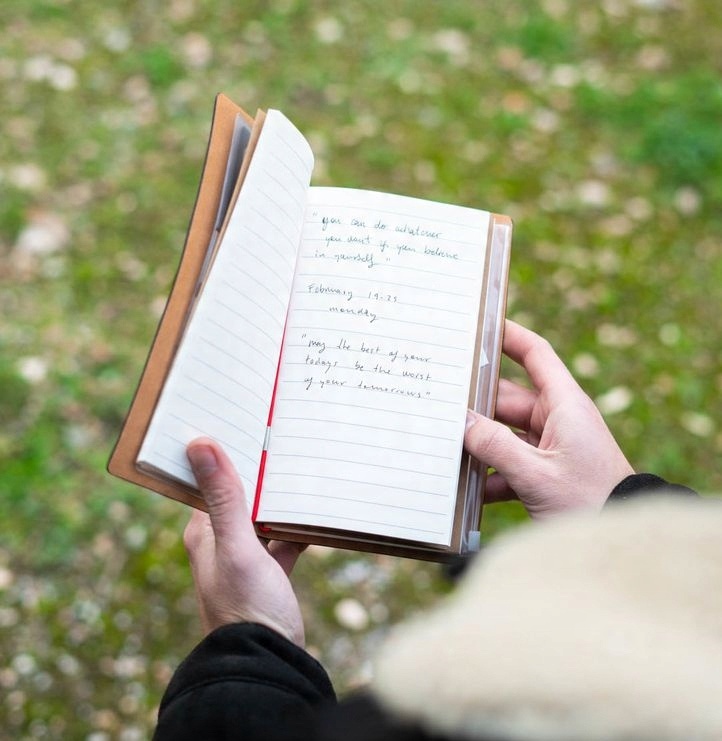 "you can do whatever
you want if you believe
in yourself"
February 19-25
monday
"may the best of your
todays be the worst
of your tomorrows"